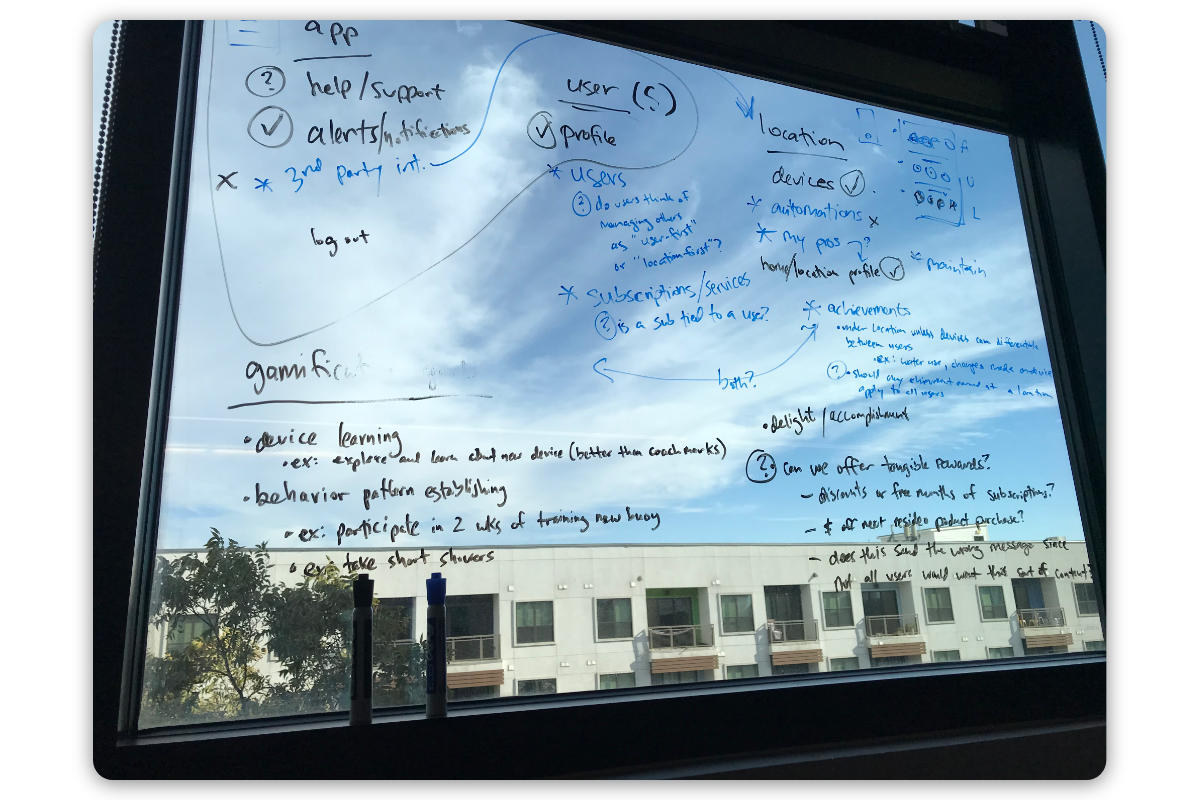 app
? help/support
✓ alerts/notifications
x * 3rd party int.
log out
user (s)
✓ profile
* users
? do users think of
managing others
as "user-first"
or "location-first"?
* subscriptions/services
? is a sub tied to a user?
both?
location
devices ✓
* automations x
* my pros ?
home/location profile ✓
* maintain
* achievements
• under location unless devices can differentiate
between users
• ex: water use, changes made on device
? • should any achievement earned at a location
apply to all users
gamificat
• device learning
• ex: explore and learn about new device (better than coach marks)
• behavior pattern establishing
• ex: participate in 2 wks of training new buoy
• ex: take short showers
• delight/accomplishment
? can we offer tangible rewards?
– discounts or free months of subscriptions?
– $ off next resideo product purchase?
– does this send the wrong message since
not all users would want this sort of content?